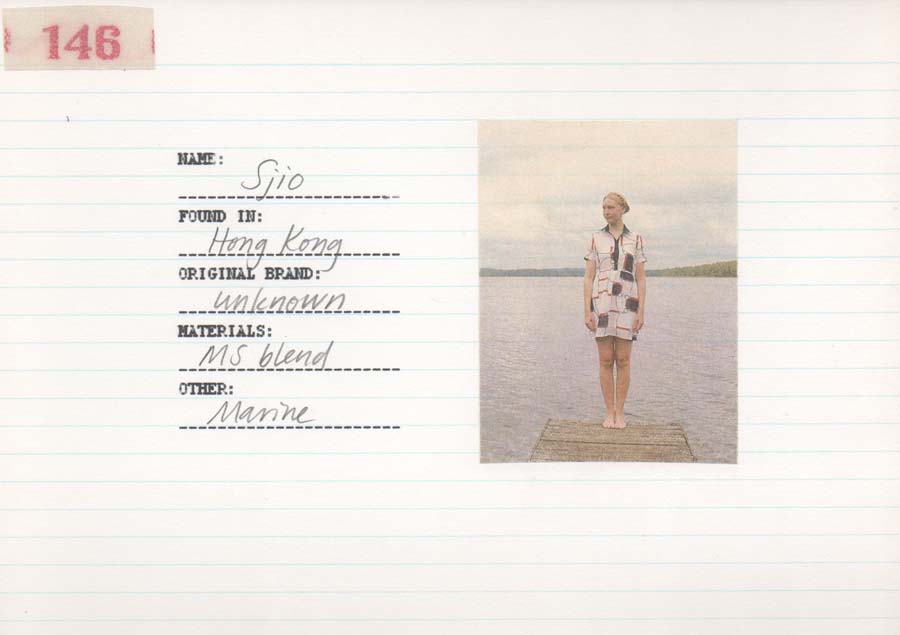 146
NAME:
Sjio
FOUND IN:
Hong Kong
ORIGINAL BRAND:
unknown
MATERIALS:
MS blend
OTHER:
Marine